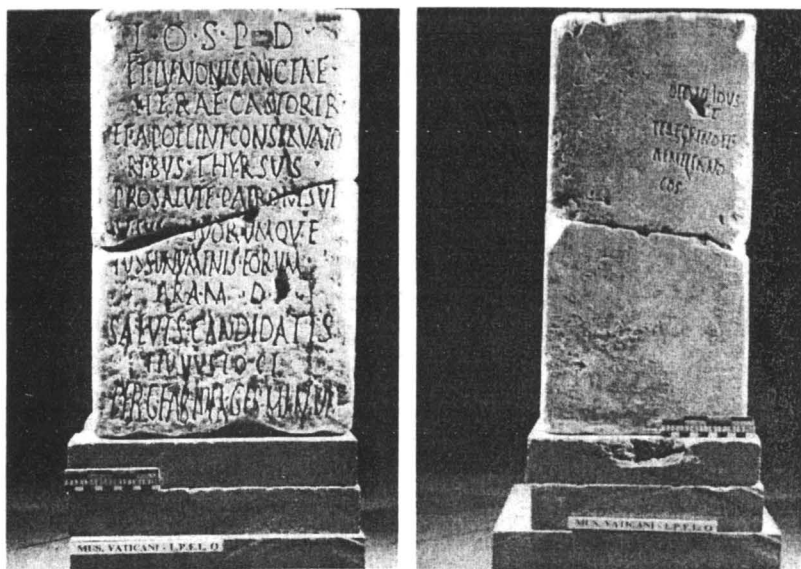 I·O·S·P·D
ET·IVNONI SANCTAE
HERAE CASTORIB
ET·APOLLINI·CONSERVATO
RIBVS·THYRSVS
PRO SALVTE·PATRONI·SVI
SVORVMQVE
IVSSV NVMINIS·EORVM
ARAM D
SALVIS·CANDIDATIS
HVIVS LO CI
IDVS
PEREGRINO ET
AEMILIANO
COS
MUS. VATICANI - I.P.E.L. O
MUS. VATICANI - I.P.E.L. O